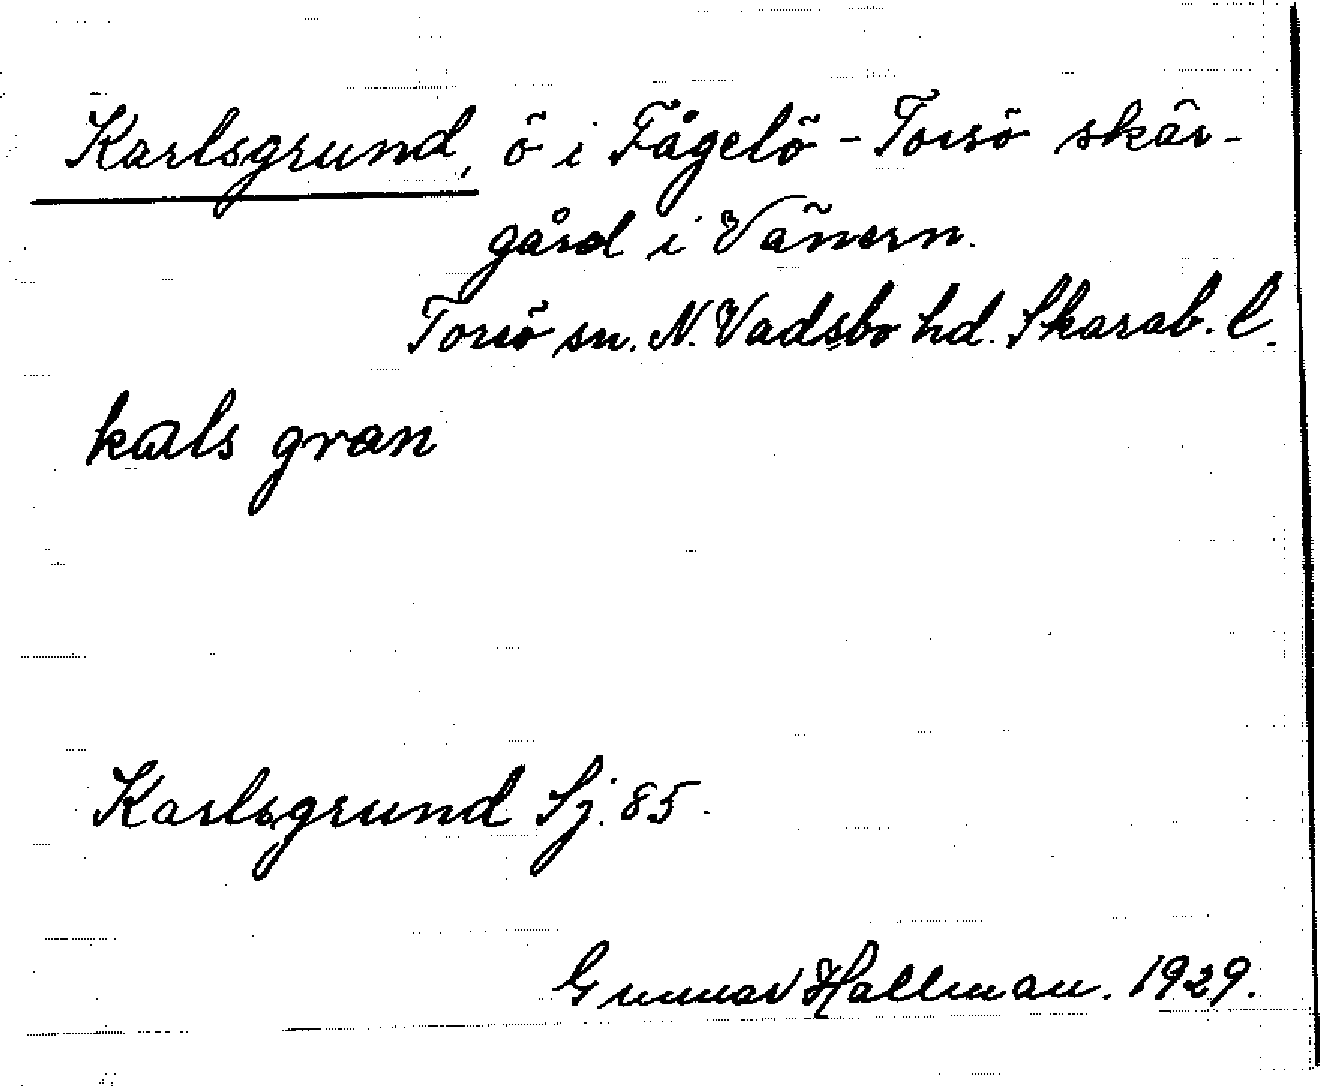 Karlsgrund, ö i Fågelö-Torsö skär-
gård i Vänern.
Torsö sn. N. Vadsbo hd. Skarab. l.
kals gran
Karlsgrund Sj. 85.
Gunnar Hallman. 1929.